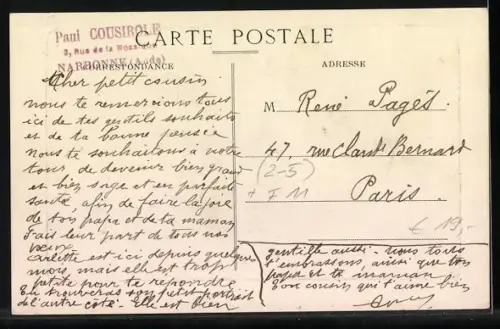 Paul COUSIROLE
3, Rue de la
NARBONNE (Aude)
CARTE POSTALE
CORRESPONDANCE
ADRESSE
Cher petit cousin
nous te remercions tous
ici de tes gentils souhaits
et de ta bonne pensée
nous te souhaitons à notre
tour de devenir bien grand
et bien sage et en parfaite
santé, afin de faire la joie
de ton papa et de ta maman
Fais leur part de tous nos
vœux.
Arlette est ici depuis quelques
mois, mais elle est trop
petite pour te repondre
Tu trouveras son petit portrait
de l'autre côté. Elle est bien
gentille aussi. nous tous
t'embrassons, ainsi que ton
papa et ta maman
Ton cousin qui t'aime bien
M René Pagès.
47, rue Claude Bernard
(2-5)
+ F M
Paris.
€ 19,-